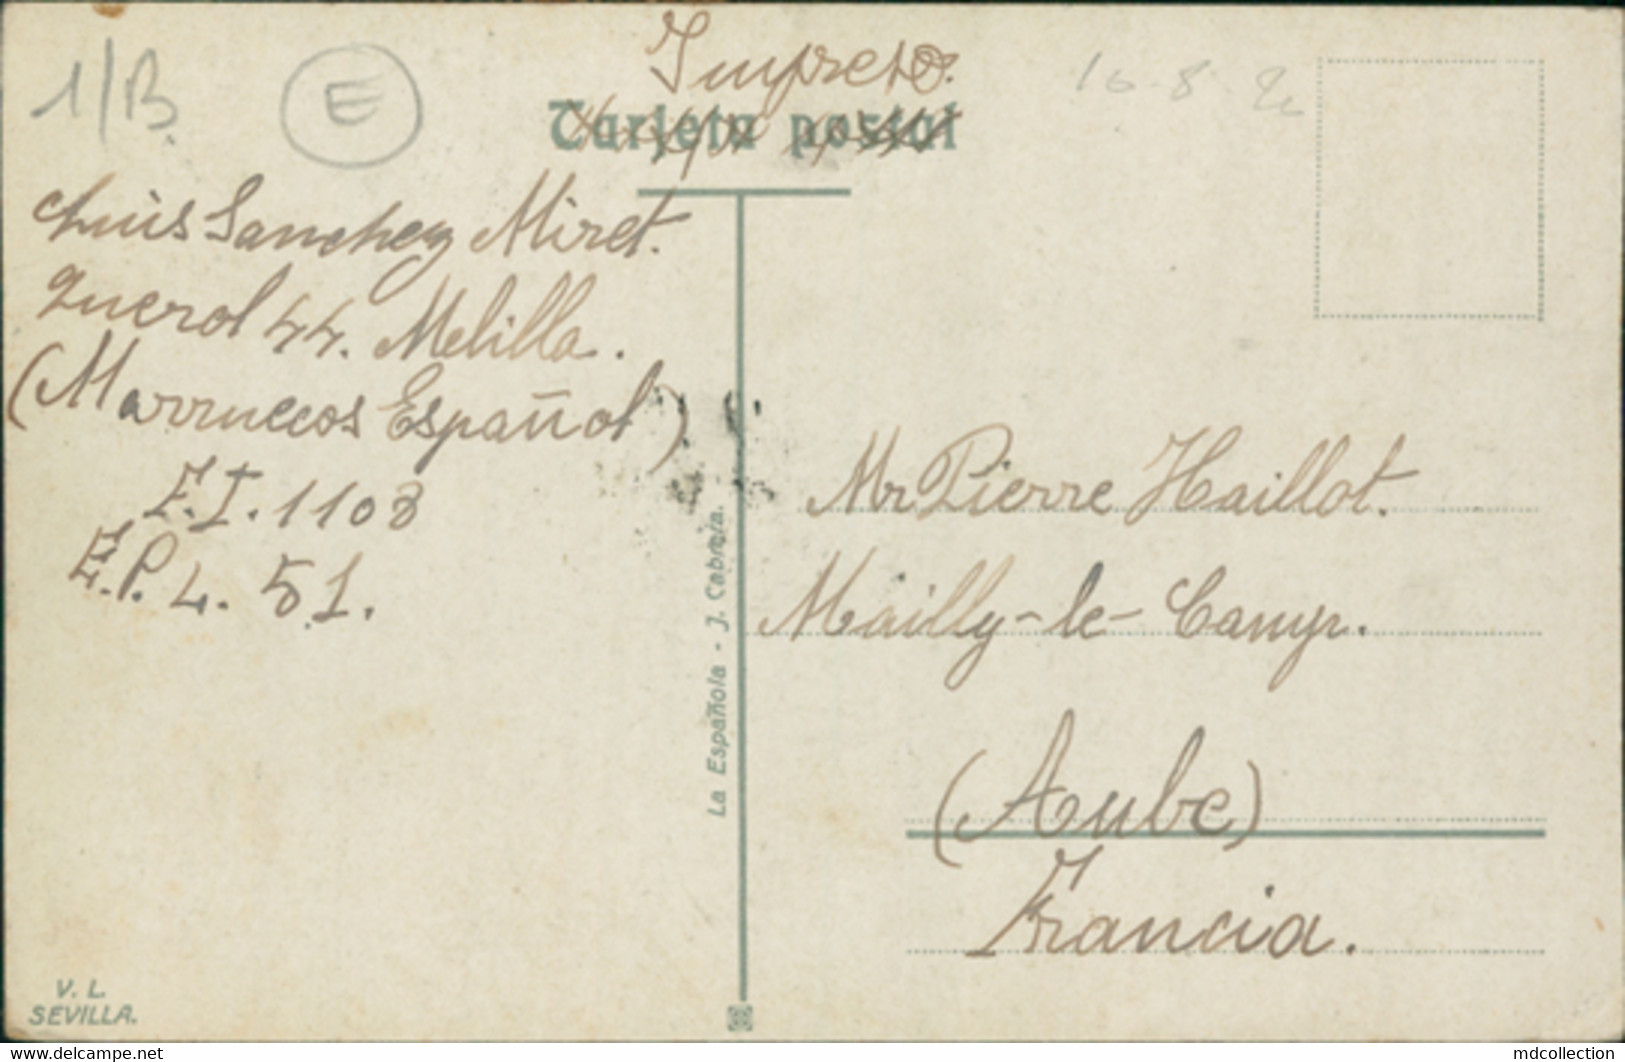 1/B
E
Impreso.
16-8-2
Tarjeta postal
Luis Sanchez Miret.
Querol 44. Melilla.
(Marruecos Español)
E.I. 1108
E.P.L. 51.
La Española - J. Cabrera.
Mr Pierre Haillot.
Mailly-le-Camp.
(Aube)
Francia.
V. L.
SEVILLA.
www.delcampe.net
mdcollection